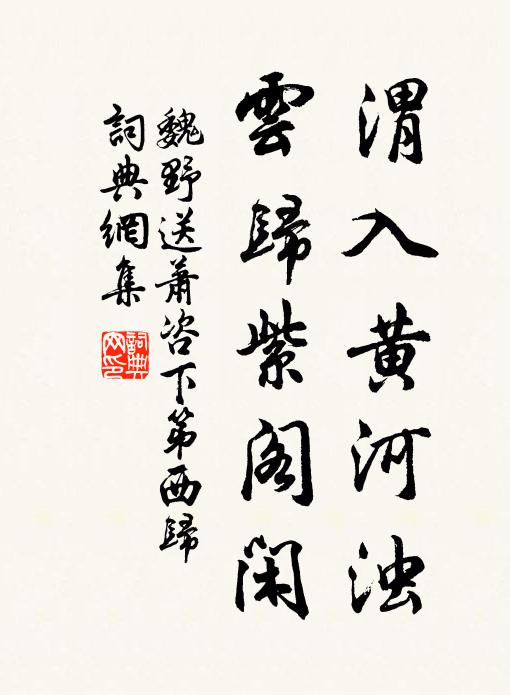 渭入黄河浊
雲歸紫阁闲
魏野送蕭咨下第西歸
詞典網集
詞典网印